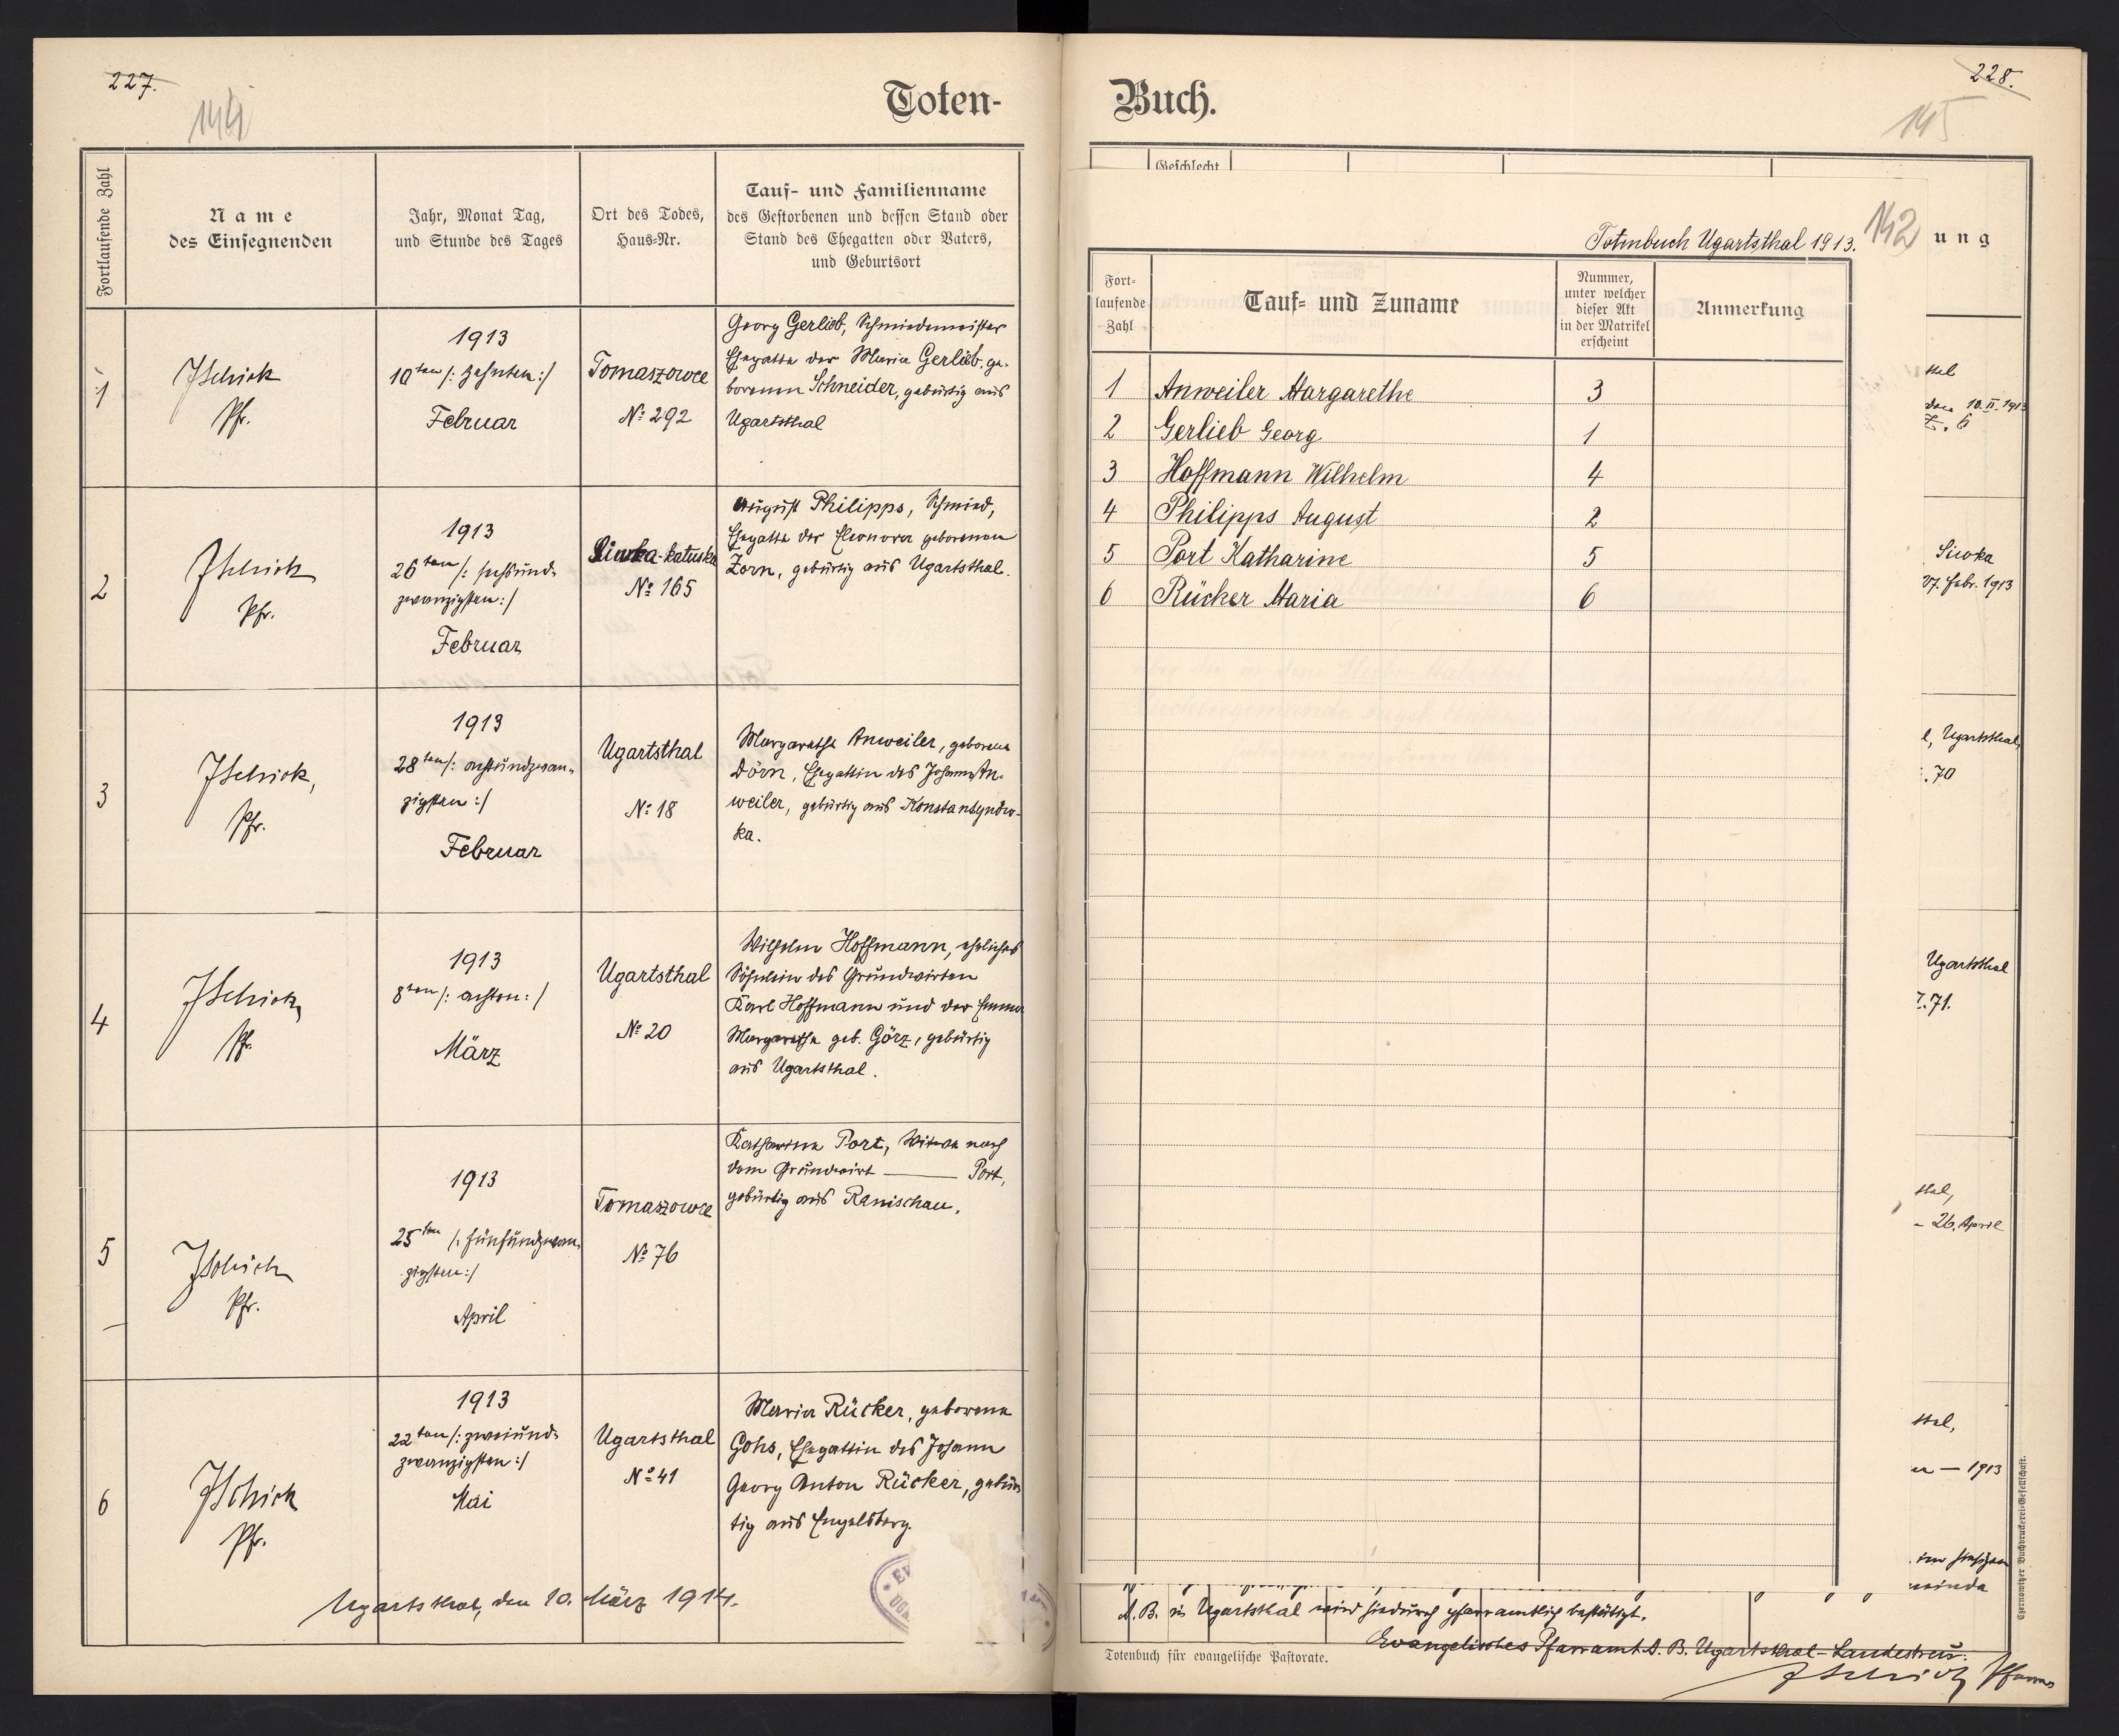 227.
144
Toten-
Fortlaufende Zahl
Name
des Einsegnenden
Jahr, Monat Tag,
und Stunde des Tages
Ort des Todes,
Haus-Nr.
Tauf- und Familienname
des Gestorbenen und dessen Stand oder
Stand des Ehegatten oder Vaters,
und Geburtsort
1
JSchick
Pfr.
1913
10ten /: zehnten :/
Februar
Tomaszowce
№ 292
Georg Gerlieb, Schmiedemeister
Ehegatte der Maria Gerlieb, ge-
borenen Schneider, gebürtig aus
Ugartsthal
2
JSchick
Pfr.
1913
26ten /: sechsund-
zwanzigsten :/
Februar
Siwka-kałuska
№ 165
August Philipps, Schmied,
Ehegatte der Eleonora geborenen
Zorn, gebürtig aus Ugartsthal.
3
JSchick,
Pfr.
1913
28ten /: achtundzwan-
zigsten :/
Februar
Ugartsthal
№ 18
Margarethe Anweiler, geborene
Dörn, Ehegattin des Johann An-
weiler, gebürtig aus Konstantynów-
ka.
4
JSchick,
Pfr.
1913
8ten /: achten :/
März
Ugartsthal
№ 20
Wilhelm Hoffmann, eheliches
Söhnlein des Grundwirten
Karl Hoffmann und der Emma
Margarethe geb. Görz, gebürtig
aus Ugartsthal.
5
JSchick
Pfr.
1913
25ten /: fünfundzwan-
zigsten :/
April
Tomaszowce
№ 76
Katharina Port, Witwe nach
dem Grundwirt ——— Port,
gebürtig aus Ranischau.
6
JSchick
Pfr.
1913
22ten /: zweiund-
zwanzigsten :/
Mai
Ugartsthal
№ 41
Maria Rücker, geborene
Gohs, Ehegattin des Johann
Georg Anton Rücker, gebür-
tig aus Engelsberg.
Ugartsthal, den 10. März 1914.
228.
145
Buch.
Geschlecht
142
ung
Totenbuch Ugartsthal 1913.
Fort-
laufende
Zahl
Tauf- und Zuname
Nummer,
unter welcher
dieser Akt
in der Matrikel
erscheint
Anmerkung
1 Anweiler Margarethe 3
2 Gerlieb Georg 1
3 Hoffmann Wilhelm 4
4 Philipps August 2
5 Port Katharine 5
6 Rücker Maria 6
thal
den 10. II. 1913
Z. 6
Siwka
27. Febr. 1913
l, Ugartsthal,
. 70
Ugartsthal
Z. 71.
thal,
- 26. April
thal,
— 1913
im hiesigen
A. B. in Ugartsthal wird hiedurch pfarramtlich bestätigt.
Evangelisches Pfarramt A. B. Ugartsthal-Landestreu:
JSchick Pfarrer
Totenbuch für evangelische Pastorate.
Czernowitzer Buchdruckerei-Gesellschaft.